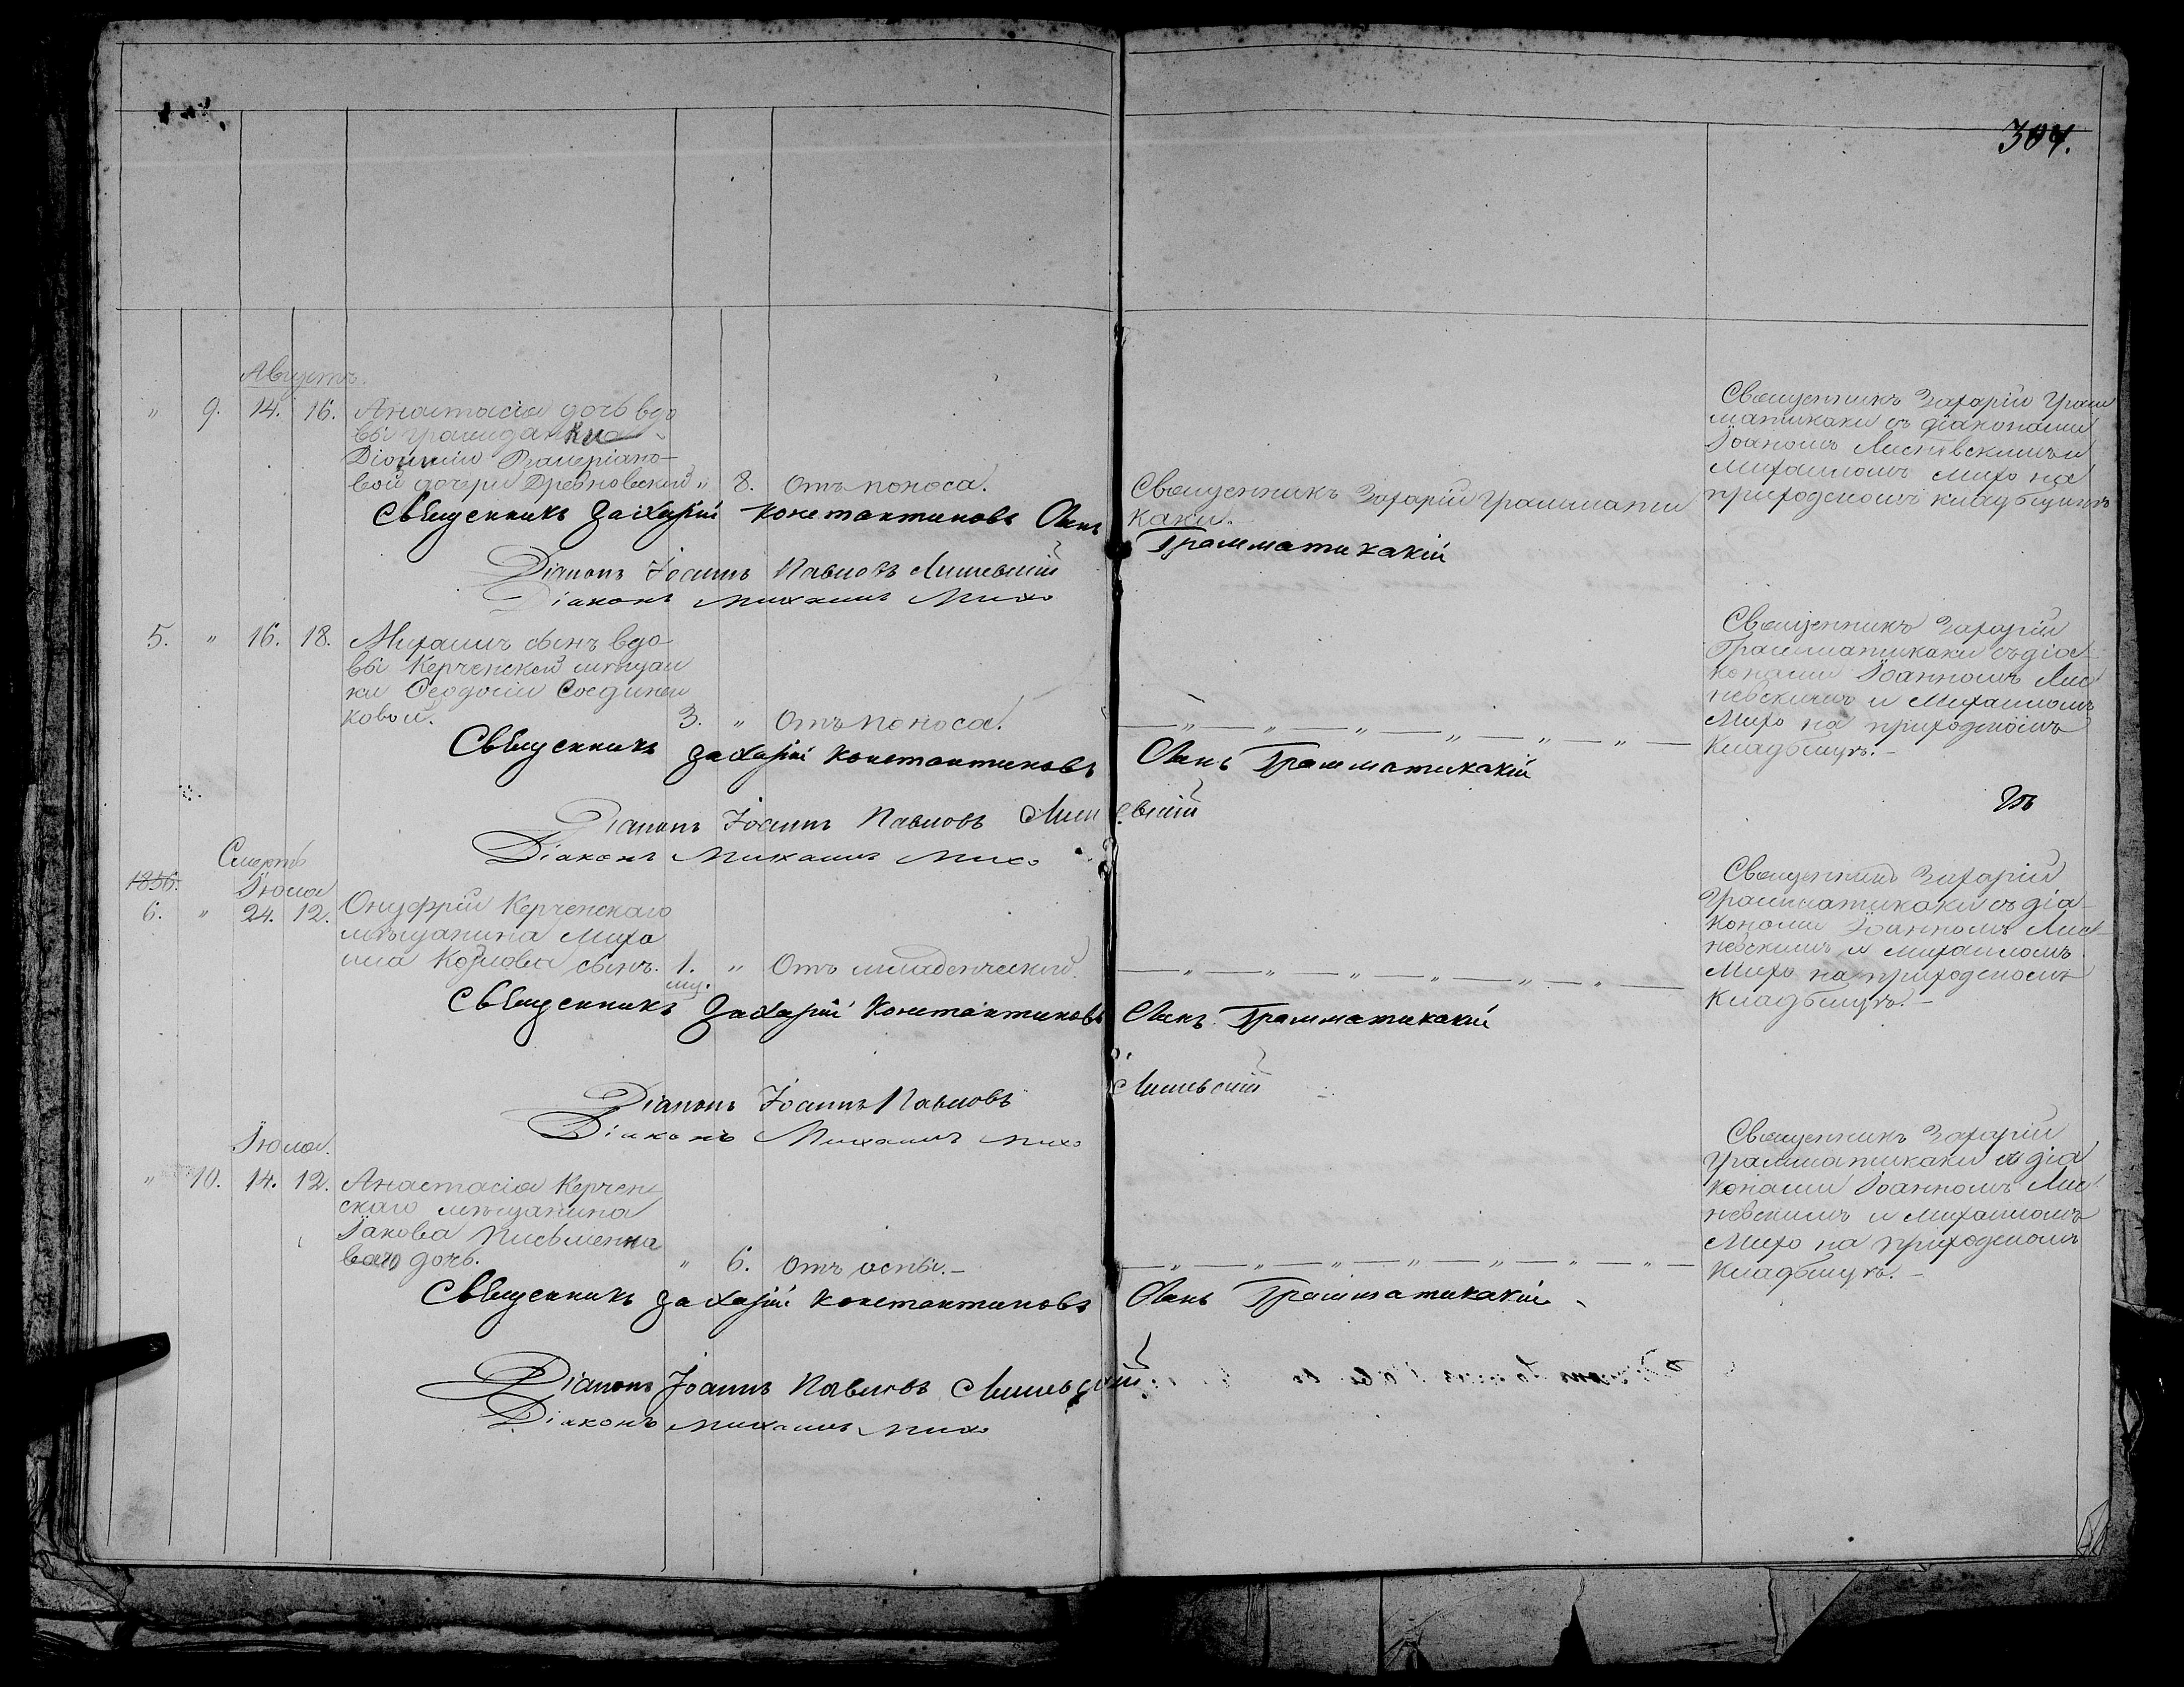 304.
Августъ.
" 9. 14. 16. Анастасія дочь вдо
вы гражданки
Діонисіи Валеріано-
вой дочери Древновской " 8. Отъ поноса.
Священникъ Захарій Грамматикаки
Священникъ Захарій Грам
матикаки съ діаконами
Іоаномъ Листевскимъ и
Михаиломъ Михо на
приходскомъ кладбищѣ
Священникъ Захарій Константиновъ Сынъ Грамматикакій
Діаконъ Іоаннъ Павловъ
Діаконъ Михаилъ Михо
5. " 16. 18. Михаилъ сынъ вдо-
вы Керченской мѣщан
ки Ѳеодосіи Соединен
ковой. 3. " Отъ поноса. — " — " — " — " — " —
Священникъ Захарій
Грамматикаки съ діа-
конами Іоанномъ Лис
невскимъ и Михаиломъ
Михо на приходскомъ
кладбищѣ. –
Священникъ Захарій Константиновъ Сынъ Грамматикакій
Діаконъ Іоаннъ Павловъ
Діаконъ Михаилъ Михо
Смерть
1856. Іюля
6. " 24. 12. Онуфрій Керченскаго
мѣщанина Миха
ила Козлова сынъ. 1. " Отъ младенческой. — " — " — " — " — " —
мц.
Священникъ Захарій
Грамматикаки съ діа-
конами Іоанномъ Лис-
невскимъ и Михаиломъ
Михо на приходскомъ
кладбищѣ. –
Священникъ Захарій Константиновъ Сынъ Грамматикакій
Діаконъ Іоаннъ Павловъ
Діаконъ Михаилъ Михо
Іюля.
" 10. 14. 12. Анастасія Керчен-
скаго мѣщанина
Іакова Письменна
го дочь. " 6. Отъ оспы. – — " — " — " — " — " — " —
Священникъ Захарій
Грамматикаки съ діа
конами Іоанномъ Лис
невскимъ и Михаиломъ
Михо на приходскомъ
кладбищѣ. –
Священникъ Захарій Константиновъ Сынъ Грамматикакій
Діаконъ Іоаннъ Павловъ
Діаконъ Михаилъ Михо